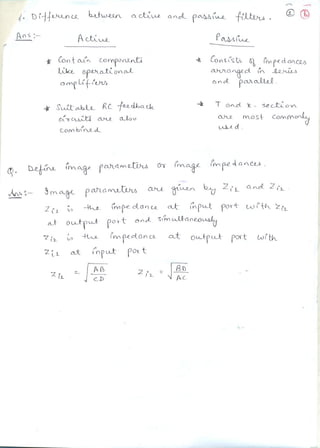 1. Difference between active and passive filters.
Ans:- Active Passive
* Contain components like operational amplifiers
* Consists of impedances arranged in series and parallel.
* Suitable RC feedback circuits are also combined
* T and π - section are most commonly used.
Q. Define image parameters or image impedances.
Ans:- Image parameters are given by Zi1 and Zi2
Zi1 is the impedance at input port with Zi2
at output port and simultaneously
Zi2 is the impedance at output port with
Zi1 at input port
Zi1 = √AB/CD Zi2 = √BD/AC